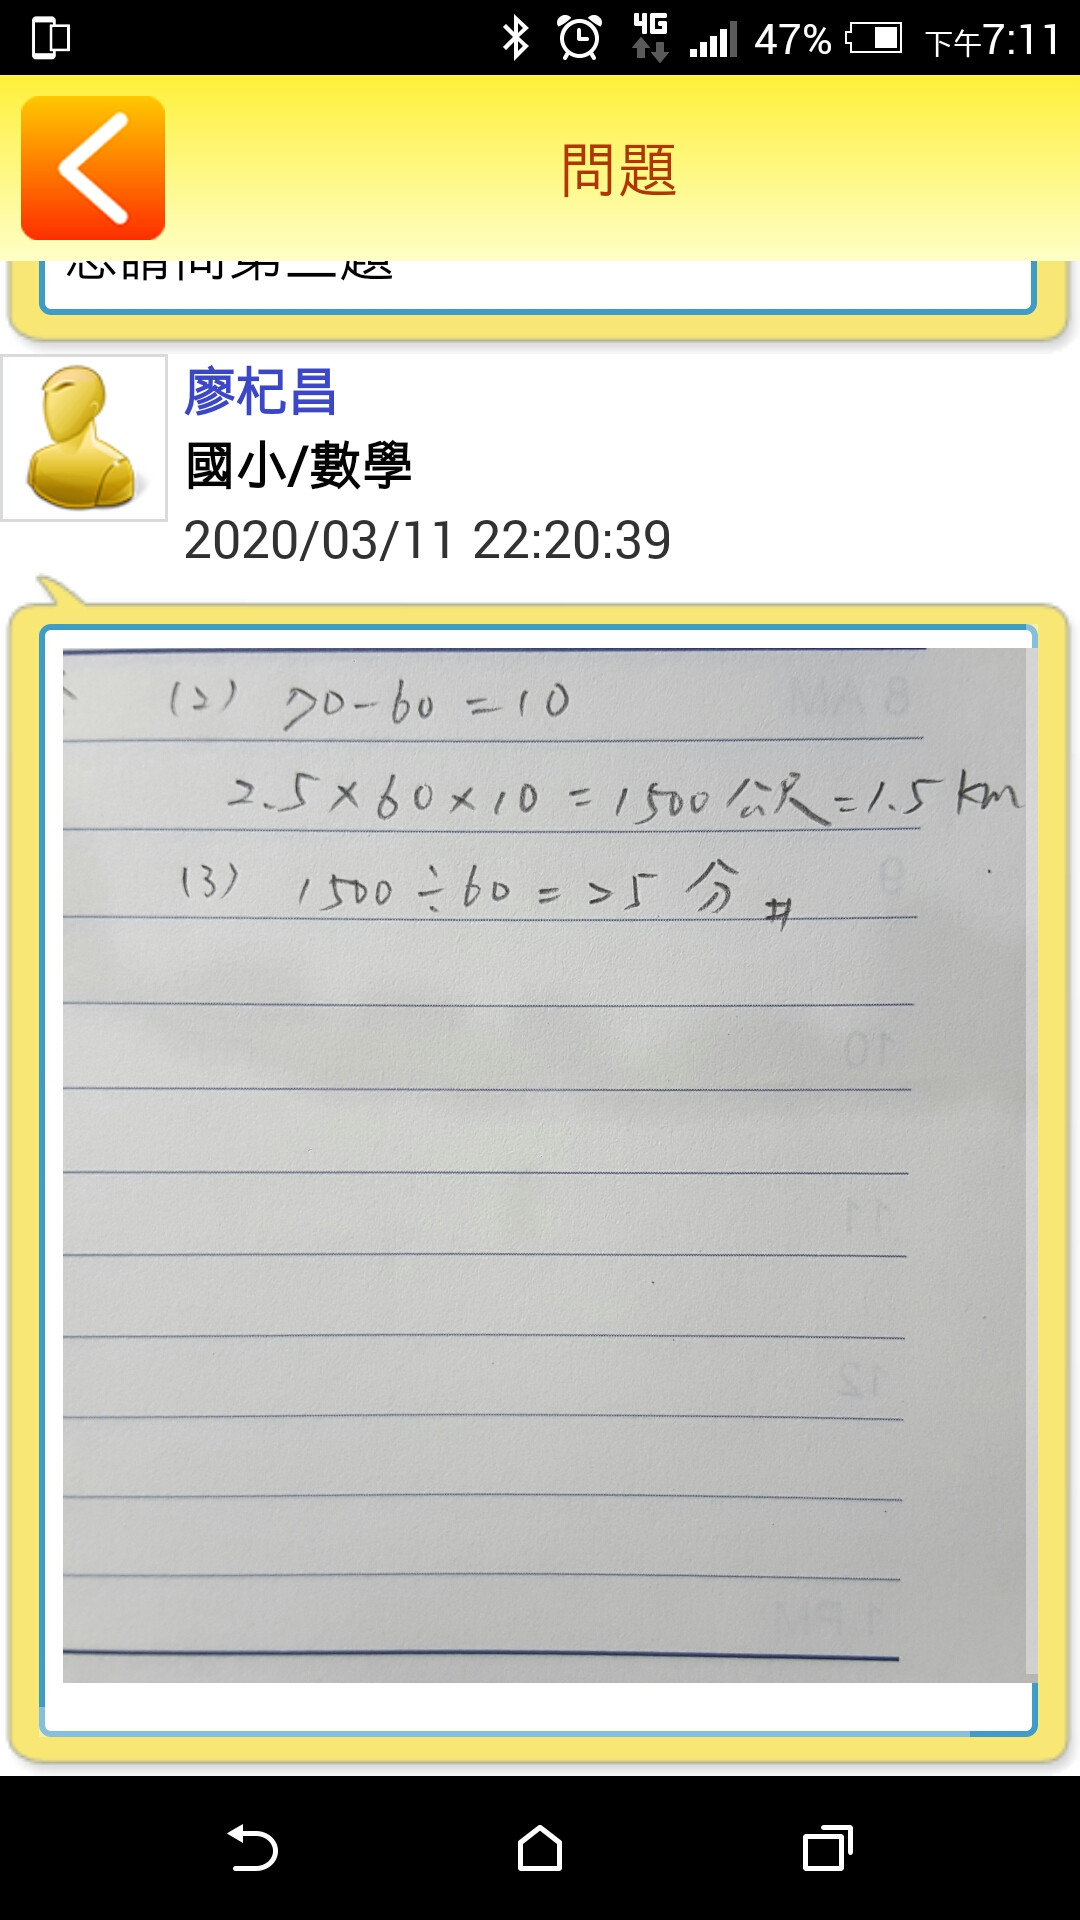 4G 47% 下午7:11
問題
您請問第二題
廖杞昌
國小/數學
2020/03/11 22:20:39
8 AM
(2) 70-60=10
2.5×60×10=1500公尺=1.5km
9
(3) 1500÷60=25 分 #
10
11
12
1 PM